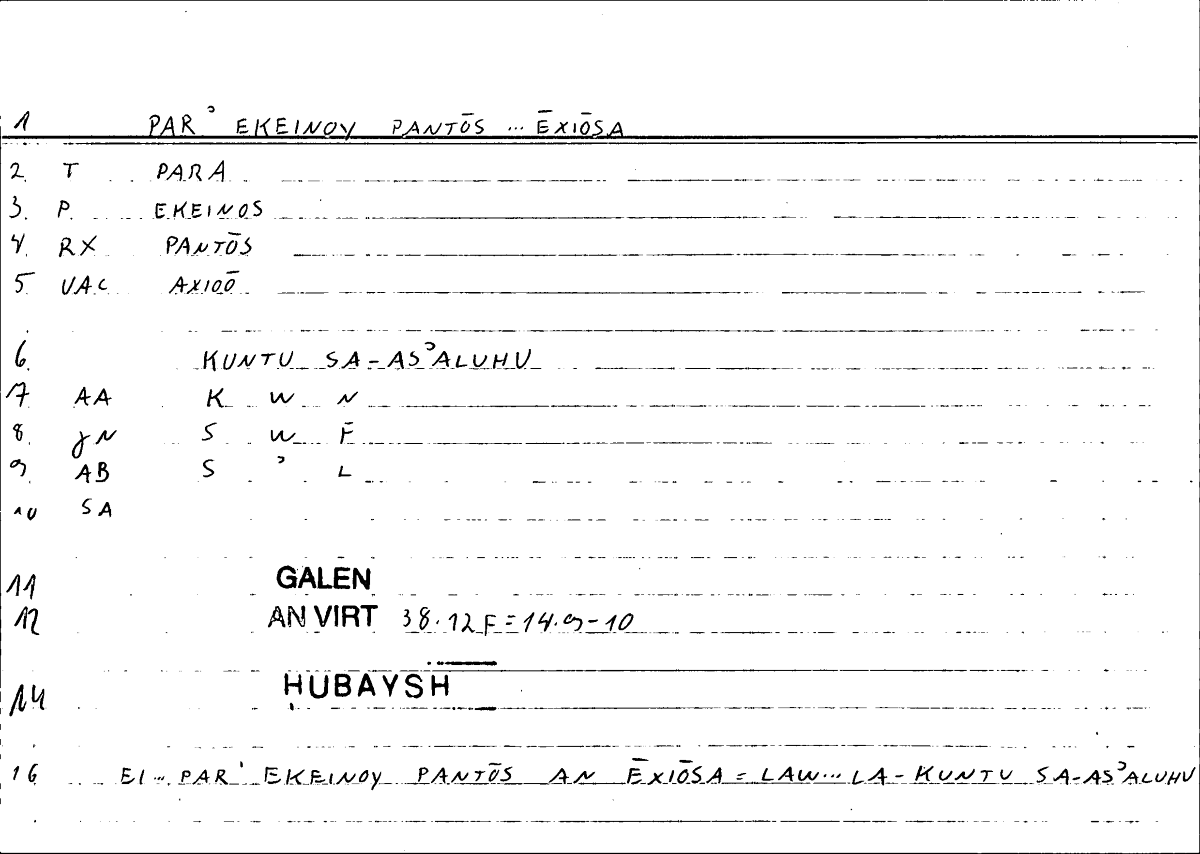 1 PAR' EKEINOY PANTŌS ... ĒXIŌSA
2. T PARA
3. P. EKEINOS
4. RX PANTŌS
5. VAC AXIOŌ
6. KUNTU SA-ASʾALUHU
7 AA K W N
8. JN S W F
9. AB S ʾ L
10 SA
11 GALEN
12 AN VIRT 38.12F=14.9-10
14 ḤUBAYSH
16 EI... PAR' EKEINOY PANTŌS AN ĒXIŌSA = LAW... LA-KUNTU SA-ASʾALUHU